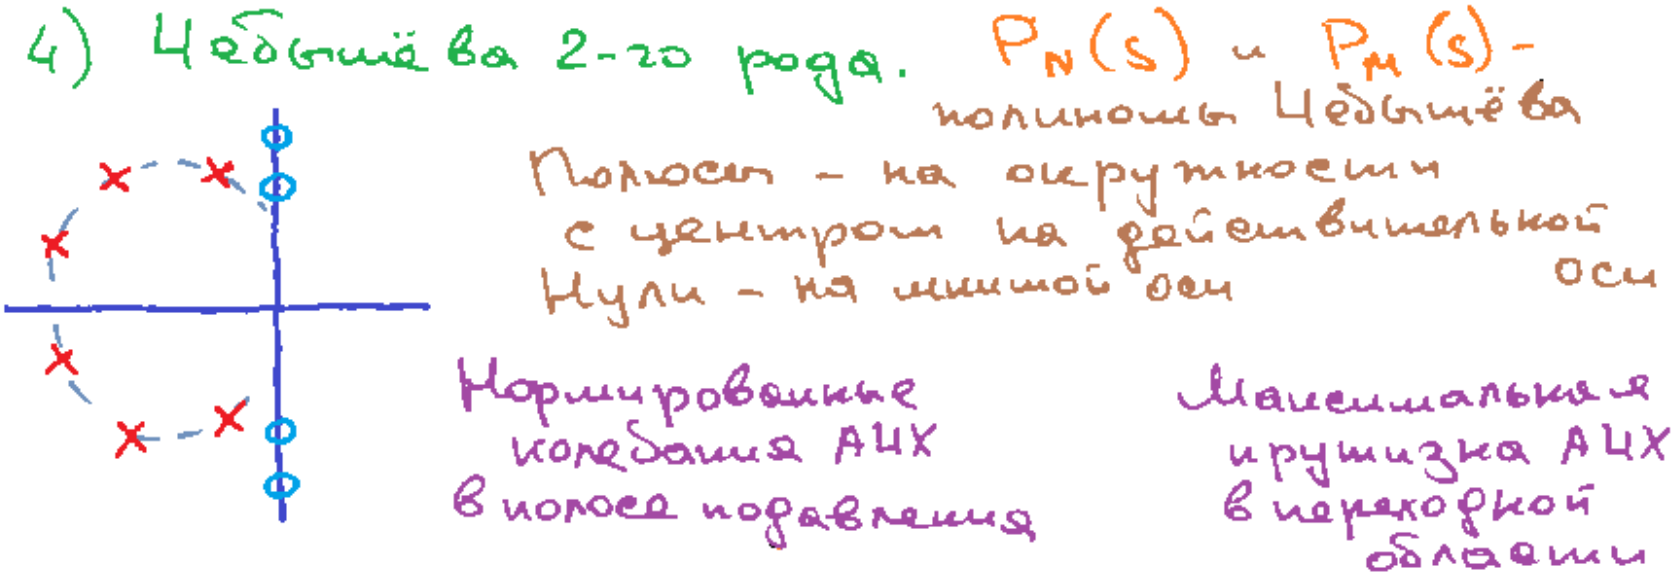 4) Чебышёва 2-го рода. P_N(s) и P_M(s) -
полиномы Чебышёва
Полюсы - на окружности
с центром на действительной
оси
Нули - на мнимой оси
Нормированные
колебания АЧХ
в полосе подавления
Максимальная
крутизна АЧХ
в переходной
области